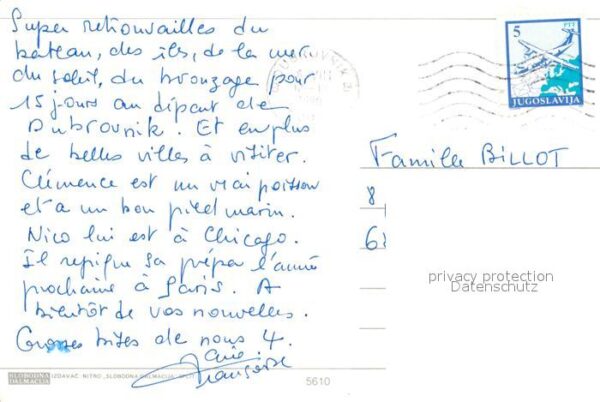 Super retrouvailles du
bateau, des îles, de la mer
du soleil, du bronzage pour
15 jours au départ de
Dubrovnik. Et en plus
de belles villes à visiter.
Clémence est un vrai poisson
et a un bon pied marin.
Nico lui est à Chicago.
Il repique sa prépa l'année
prochaine à Paris. A
bientôt de vos nouvelles.
Grosses bises de nous 4.
Françoise
5
PTT
JUGOSLAVIJA
DUBROVNIK
Famille BILLOT
8
68
privacy protection
Datenschutz
SLOBODNA
DALMACIJA
IZDAVAČ: NITRO „SLOBODNA DALMACIJA" SPLIT
5610